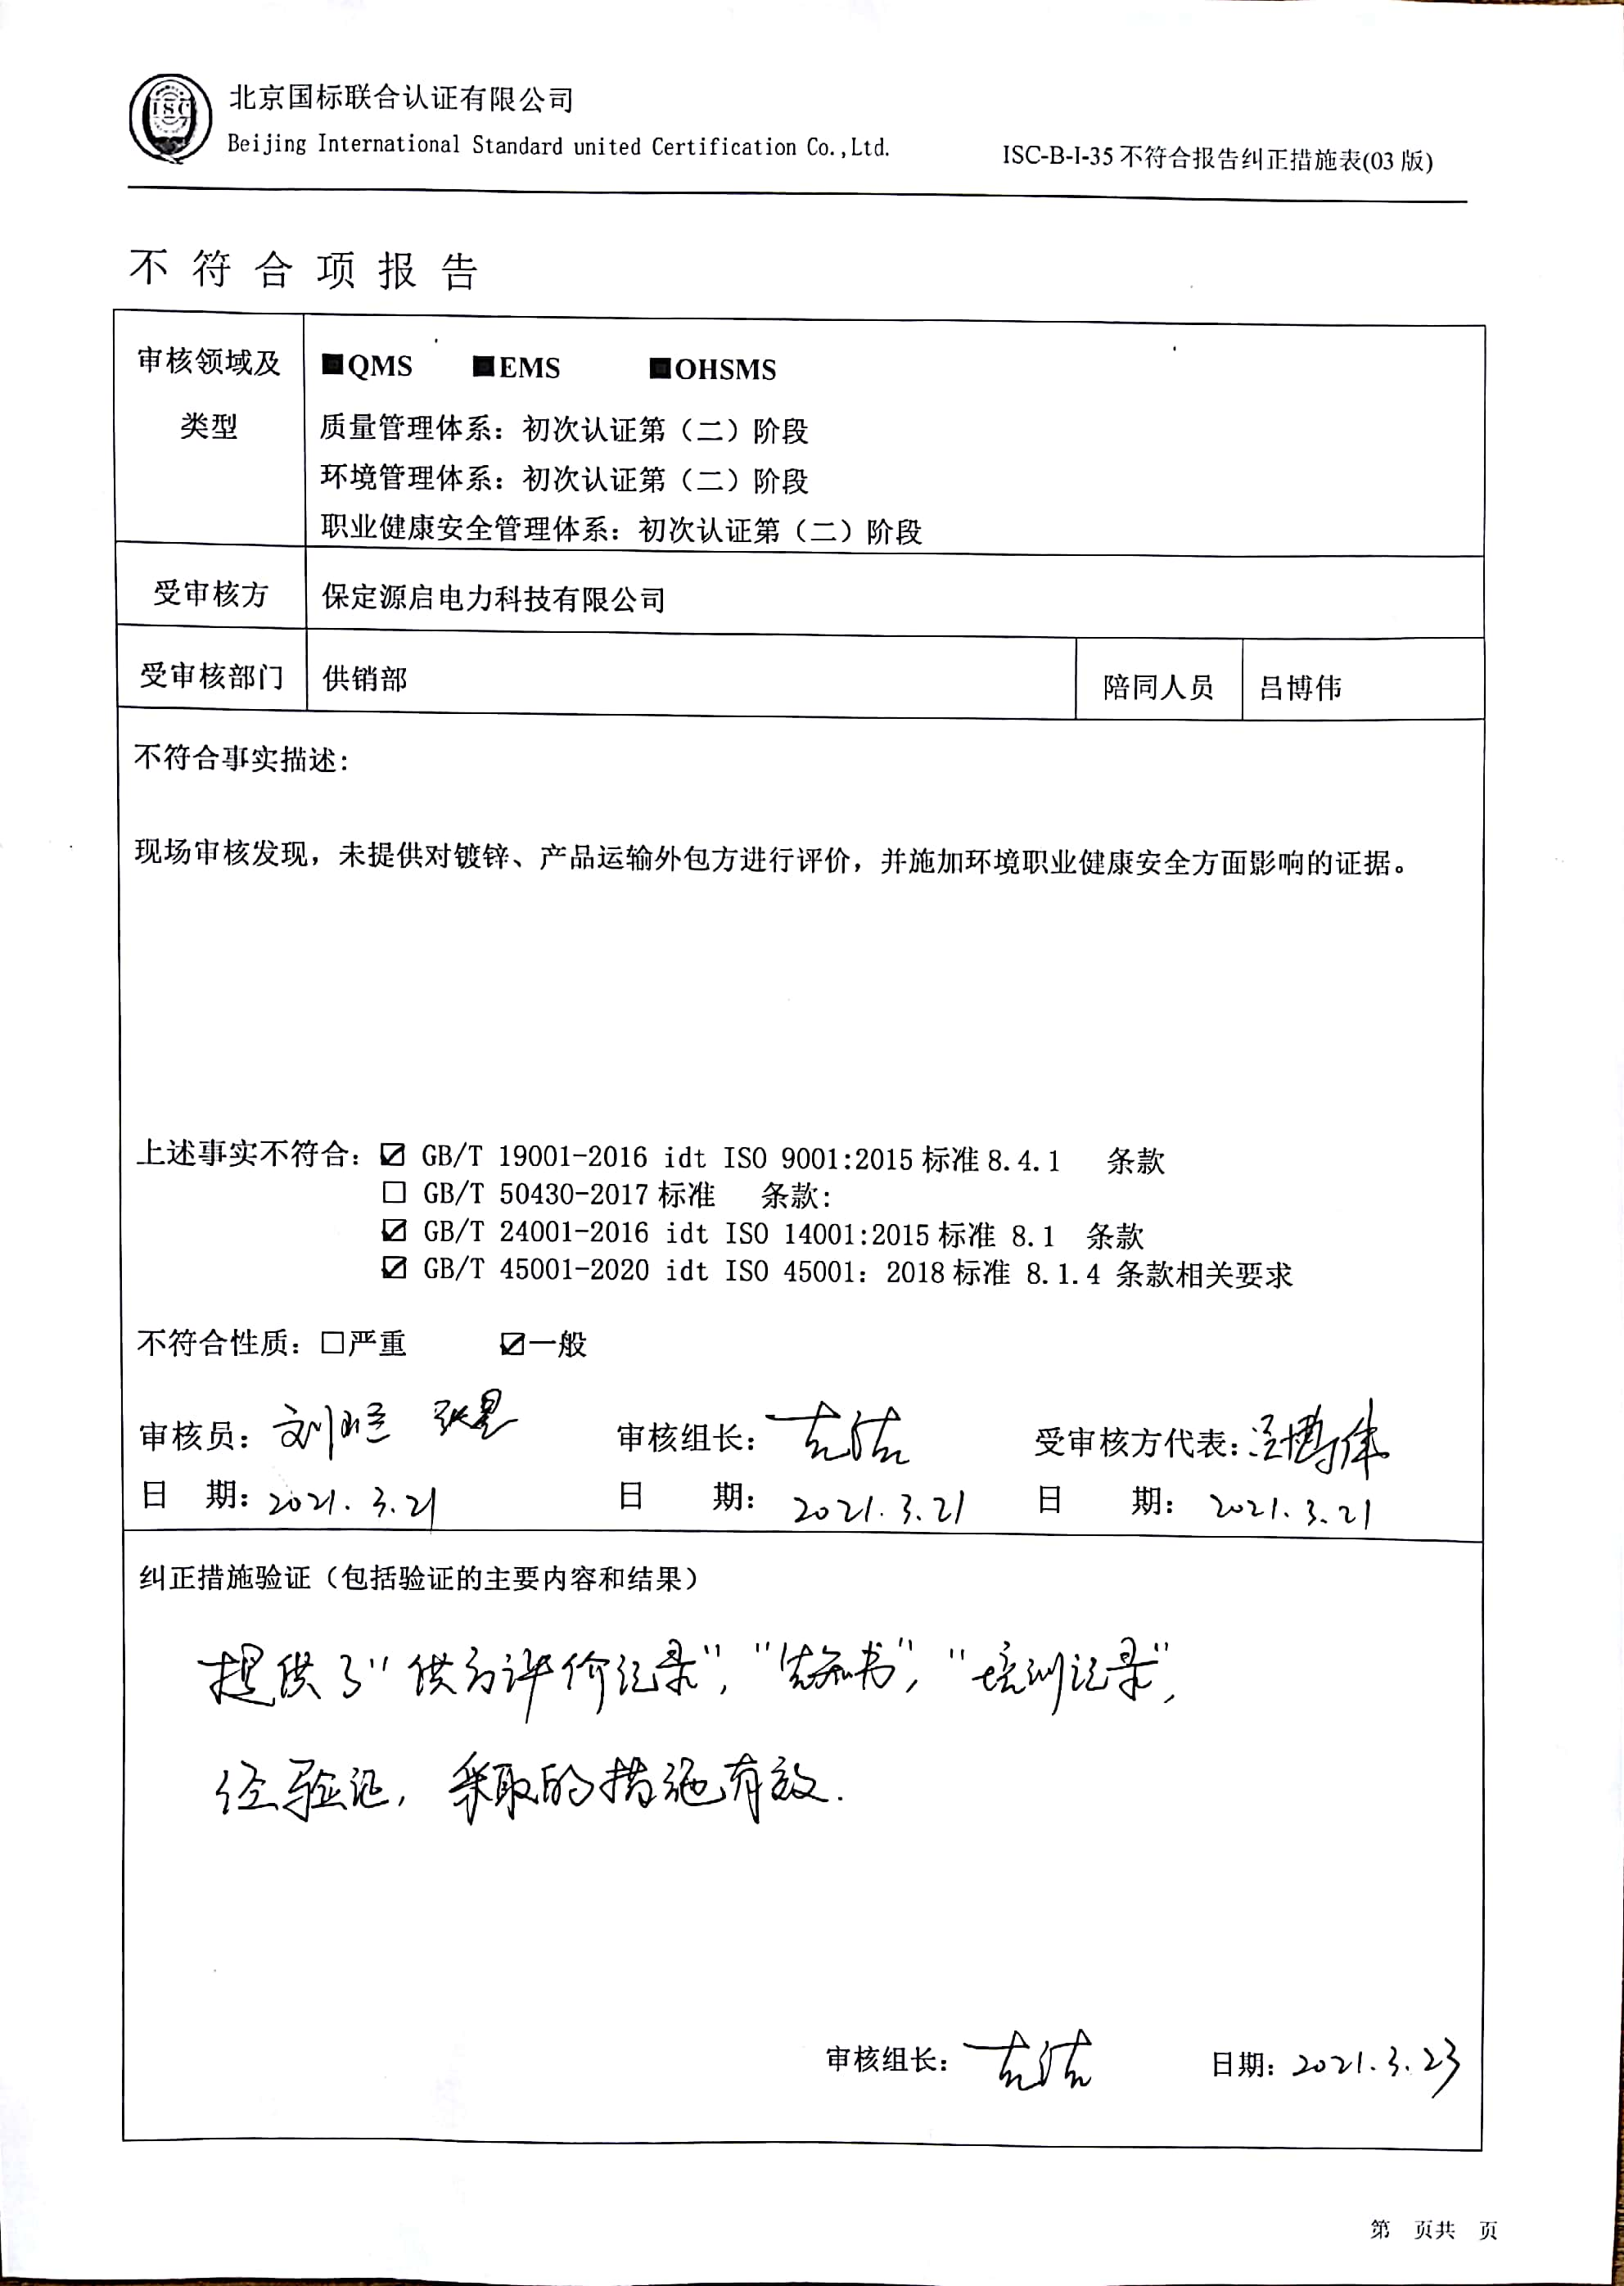 ISC
北京国标联合认证有限公司
Beijing International Standard united Certification Co.,Ltd.
ISC-B-I-35 不符合报告纠正措施表(03 版)
不符合项报告
审核领域及类型
■QMS ■EMS ■OHSMS
质量管理体系：初次认证第（二）阶段
环境管理体系：初次认证第（二）阶段
职业健康安全管理体系：初次认证第（二）阶段
受审核方 保定源启电力科技有限公司
受审核部门 供销部 陪同人员 吕博伟
不符合事实描述：
现场审核发现，未提供对镀锌、产品运输外包方进行评价，并施加环境职业健康安全方面影响的证据。
上述事实不符合：☑ GB/T 19001-2016 idt ISO 9001:2015 标准 8.4.1 条款
□ GB/T 50430-2017 标准 条款：
☑ GB/T 24001-2016 idt ISO 14001:2015 标准 8.1 条款
☑ GB/T 45001-2020 idt ISO 45001：2018 标准 8.1.4 条款相关要求
不符合性质：□严重 ☑一般
审核员： 审核组长： 受审核方代表：吕博伟
日 期：2021.3.21 日 期：2021.3.21 日 期：2021.3.21
纠正措施验证（包括验证的主要内容和结果）
提供了"供方评价记录"，"告知书"，"培训记录"，
经验证，采取的措施有效.
审核组长： 日期：2021.3.23
第 页共 页